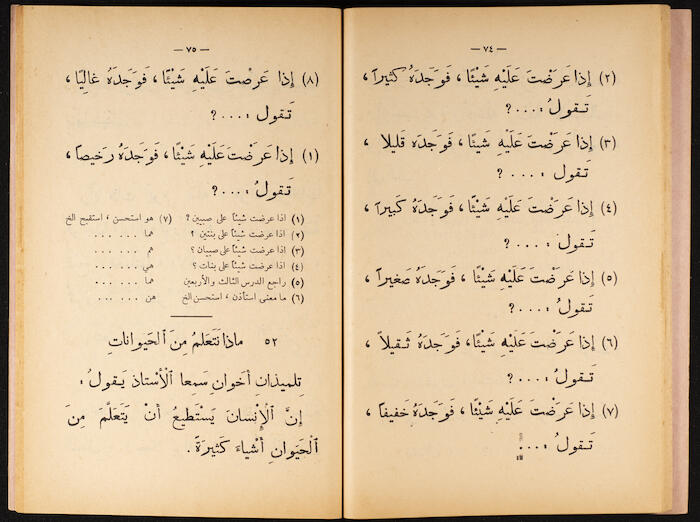 — ٧٤ —
(٢) إِذا عَرَضْتَ عَلَيْهِ شَيْئًا ، فَوَجَدَهُ كَثيراً ،
تَـقولُ : ... ؟
(٣) إِذا عَرَضْتَ عَلَيْهِ شَيْئًا ، فَوَجَدَه قَليلا ،
تَـقولُ : ... ؟
(٤) إِذا عَرَضْتَ عَلَيْهِ شَيْئًا ، فَوَجَدَهُ كَبيراً ،
تَـقولُ : ... ؟
(٥) إِذا عَرَضْتَ عَلَيْهِ شَيْئًا ، فَوَجَدَهُ صَغيراً ،
تَـقولُ : ... ؟
(٦) إِذا عَرَضْتَ عَلَيْهِ شَيْئًا ، فَوَجَدَهُ ثَـقيلاً ،
تَـقولُ : ... ؟
(٧) إِذا عَرَضْتَ عَلَيْهِ شَيْئًا ، فَوَجَدَهُ خَفيفاً ،
تَـقولُ : ...
— ٧٥ —
(٨) إِذا عَرَضْتَ عَلَيْهِ شَيْئًا ، فَوَجَدَهُ غالِيًا ،
تَـقول : ... ؟
(١) إِذا عَرَضْتَ عَلَيْهِ شَيْئًا ، فَوَجَدَهُ رَخيصاً ،
تَـقولُ : ... ؟
(١) اذا عرضت شيئاً على صبيين ؟ (٧) هو استحسن ، استقبح الخ
(٢) اذا عرضت شيئاً على بنتين ؟ هما ... ...
(٣) اذا عرضت شيئاً على صبيان ؟ هم ... ...
(٤) اذا عرضت شيئاً على بنات ؟ هي ... ...
(٥) راجع الدرس الثالث والأربعين هما ... ...
(٦) ما معنى استأذن ، استحسن الخ هن ... ...
٥٢ ماذا نَتَعَلَّمُ مِنَ ٱلْحَيوانَاتِ
تِلميذانِ أَخوانِ سَمِعا ٱلْأُسْتاذَ يَـقولُ :
إِنَّ ٱلْإِنْسانَ يَسْتَطيعُ أَنْ يَتَعَلَّمَ مِنَ
ٱلْحَيَوانِ أَشْياءَ كَثيرَةً .